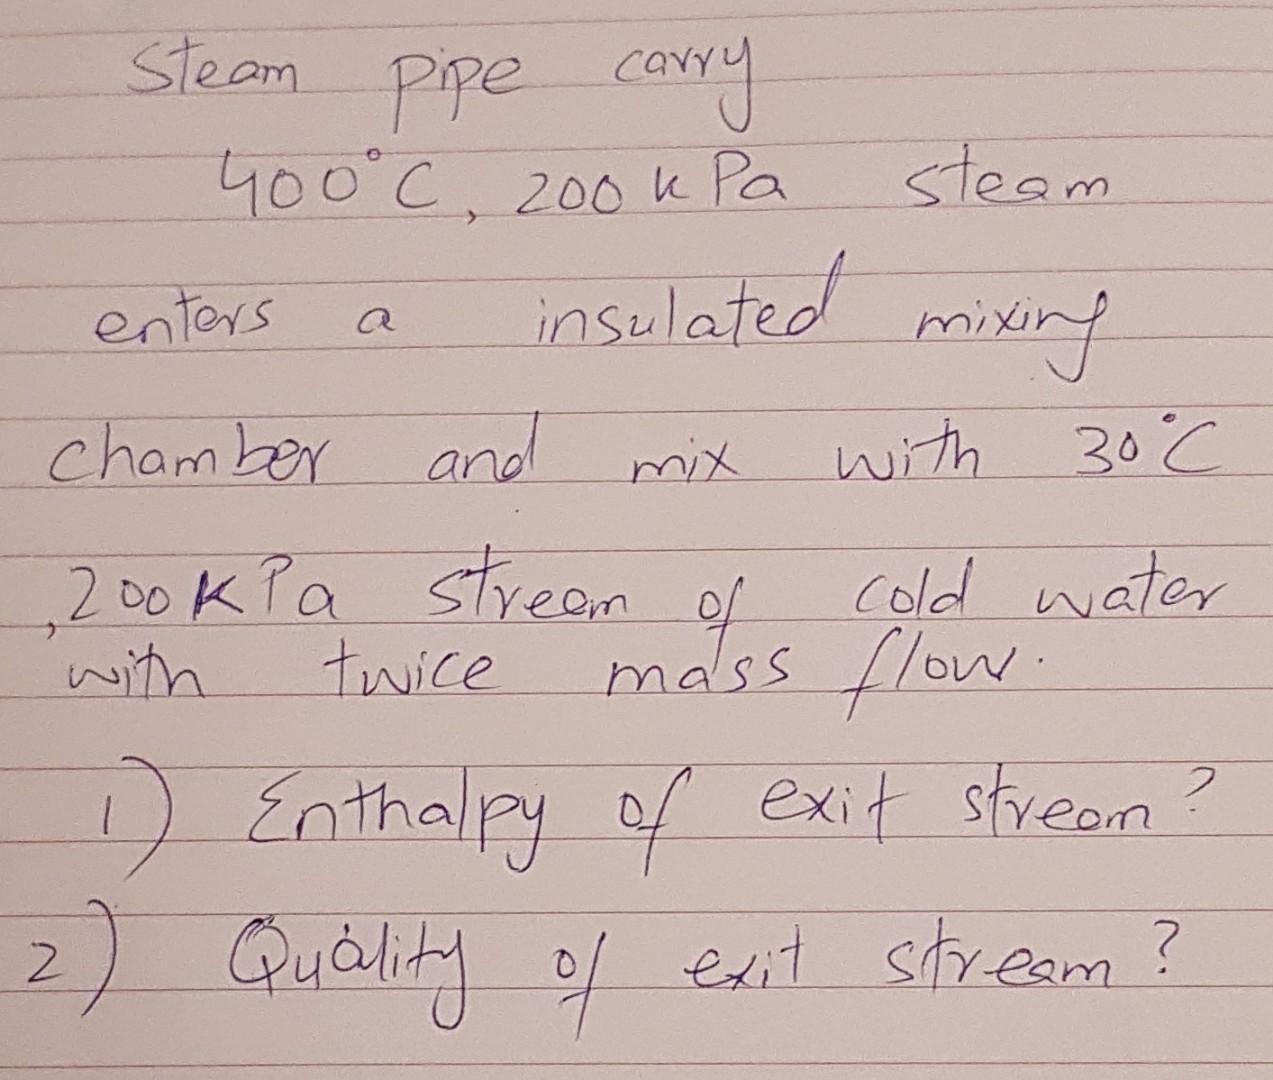 Steam pipe carry
400°C, 200 kPa steam
enters a insulated mixing
chamber and mix with 30°C
,200KPa stream of cold water
with twice mass flow.
1) Enthalpy of exit stream?
2) Quality of exit stream?